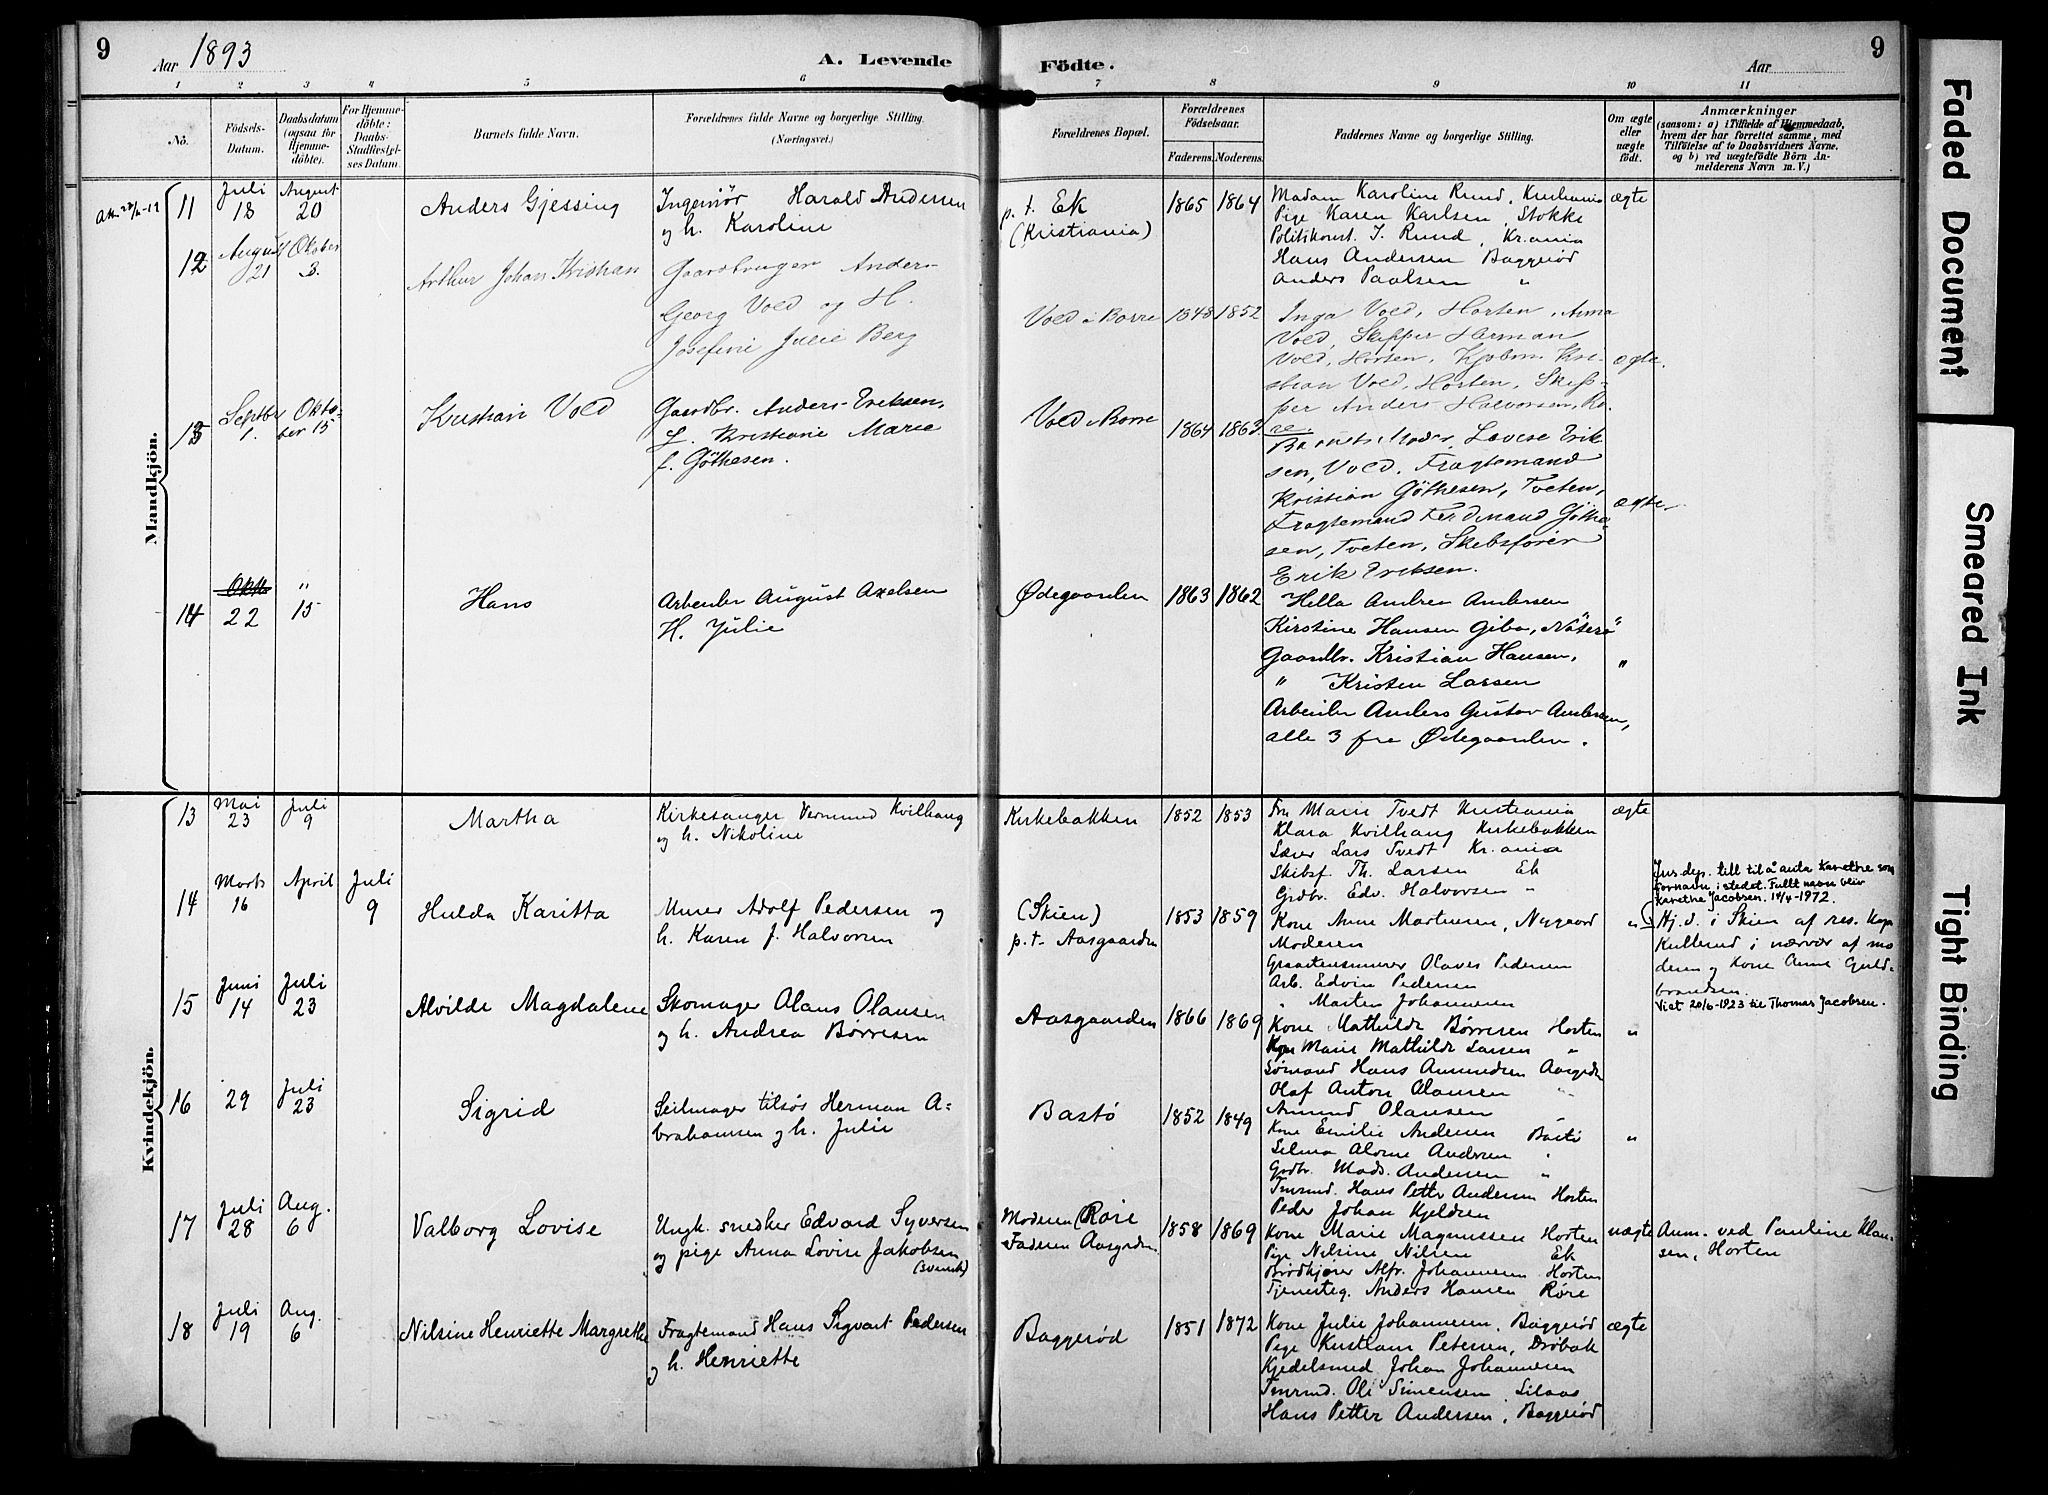 9
Aar 1893
A. Levende
Födte.
Aar
9
1 2 3 4 5 6 7 8 9 10 11
No.
Födsels-Datum.
Daabsdatum (ogsaa for Hjemme-döbte).
For Hjemme-döbte: Daabs-Stadfæstelses Datum.
Barnets fulde Navn.
Forældrenes fulde Navne og borgerlige Stilling.
(Næringsvei.)
Forældrenes Bopæl.
Forældrenes Födselsaar.
Faderens. Moderens.
Faddernes Navne og borgerlige Stilling.
Om ægte eller uægte födt.
Anmærkninger
(saasom: a) i Tilfælde af Hjemmedaab,
hvem der har forrettet samme, med
Tilföielse af to Daabsvidners Navne.
og b) ved uægtefödte Börn An-
melderens Navn m. V.)
Mandkjön.
11 Juli 18 August 20 Anders Gjessing
Ingeniör Harald Andersen
og h. Karoline
p. t. Ek
(Kristiania)
1865 1864
Madam Karoline Rund, Kristiania ægte
Pige Karen Karlsen, Stokke
Politikonst. J. Rund, Kr.ania
Hans Andersen Baggerød
Anders Paalsen "
12 August 21 Oktober 3. Arthur Johan Kristian
Gaardbruger Anders
Georg Vold og H.
Josefine Julie Berg
Vold i Borre 1848 1852
Inga Vold, Horten, Anna
Vold, Skipper Herman
Vold, Horten, Kjøbm. Kri- ægte.
stian Vold, Horten, Skip-
per Anders Halvorsen,
13 Septbr 1. Oktober 15 Kristian Vold
Gaardbr. Anders Eriksen,
H. Kristiane Marie
f. Göthesen.
Vold i Borre 1864 1863
Barnets Moder, Lovise Erik
sen, Vold. Fragtemand
Kristian Göthesen, Tveten, ægte
Fragtemand Ferdinand Göthe-
sen, Tveten, Skibsfører
Erik Eriksen.
14 22 " 15 Hans
Arbeider August Axelsen
H. Julie
Ødegaarden 1863 1862
Hella Andrea Andersen
Kirstine Hansen Gibo, Nøterø
Gaardbr. Kristian Hansen, "
" Kristen Larsen
Arbeider Anders Gustav Andersen,
alle 3 fra Ødegaarden.
Kvindekjön.
13 Mai 23 Juli 9 Martha
Kirkesanger Vermund Kvilhaug
og h. Nikoline
Kirkebakken 1852 1853
Fru Marie Tvedt Kristiania ægte
Klara Kvilhaug Kirkebakken
Lærer Lars Tvedt Kr.ania
Skibsf. Th. Larsen Ek
Grdbr. Edv. Halvorsen "
14 Marts 16 April Juli 9 Hulda Karitta
Murer Adolf Pedersen og
h. Karen f. Halvorsen
(Skien)
p. t. Aasgaarden
1853 1859
Kone Anne Martinsen, Nygaard "
Moderen
Graastensmurer Olaves Pedersen
Arb. Edvin Pedersen
" Marten Johannesen
Jus.dep. till til å anta Karethe som
fornavn i stedet. Fullt navn bliv
Karethe Jacobsen. 14/4-1972.
Hj. d. i Skien af res. Kap.
Kullerud i nærvær af mo
deren og Kone Anne Guld-
brandsen.
Viet 20/6-1923 til Thomas Jacobsen.
15 Juni 14 Juli 23 Alvilde Magdalene
Skomager Olaus Olausen
og h. Andrea Børresen
Aasgaarden 1866 1869
Kone Mathilde Børresen Horten "
Marie Mathilde Larsen "
Sømand Hans Amundsen Aasgrdn
Olaf Anton Olausen "
Amund Olausen "
16 29 Juli 23 Sigrid
Seilmager tilsøs Herman A-
brahamsen og h. Julie
Bastø 1852 1849
Kone Emilie Andersen Bastø "
Selma Alorne Andersen "
Grdbr. Mads. Andersen "
Tmrmd. Hans Petter Andersen Horten
Peder Johan Kjeldsen
17 Juli 28 Aug. 6 Valborg Lovise
Ungk. snedker Edvard Syversen
og pige Anna Lovise Jakobsen
(svensk)
Moderen Røre
Faderen Aasgrdn
1858 1869
Kone Marie Magnussen Horten uægte
Pige Nilsine Nilsen Ek
Brødkjører Alfr. Johannesen Horten
Tjenesteg. Anders Hansen Røre
Anm. ved Pauline Klau-
sen, Horten
18 Juli 19 Aug. 6 Nilsine Henriette Margrethe
Fragtemand Hans Sigvart Pedersen
og h. Henriette
Baggerød 1851 1872
Kone Julie Johannesen. Baggerød ægte
Pige Kristiane Petersen, Drøbak
Kjedelsmed Johan Johannesen
Tmrmd. Ole Simensen, Lilaas
Hans Petter Andersen, Baggerød
Faded Document
Smeared Ink
Tight Binding